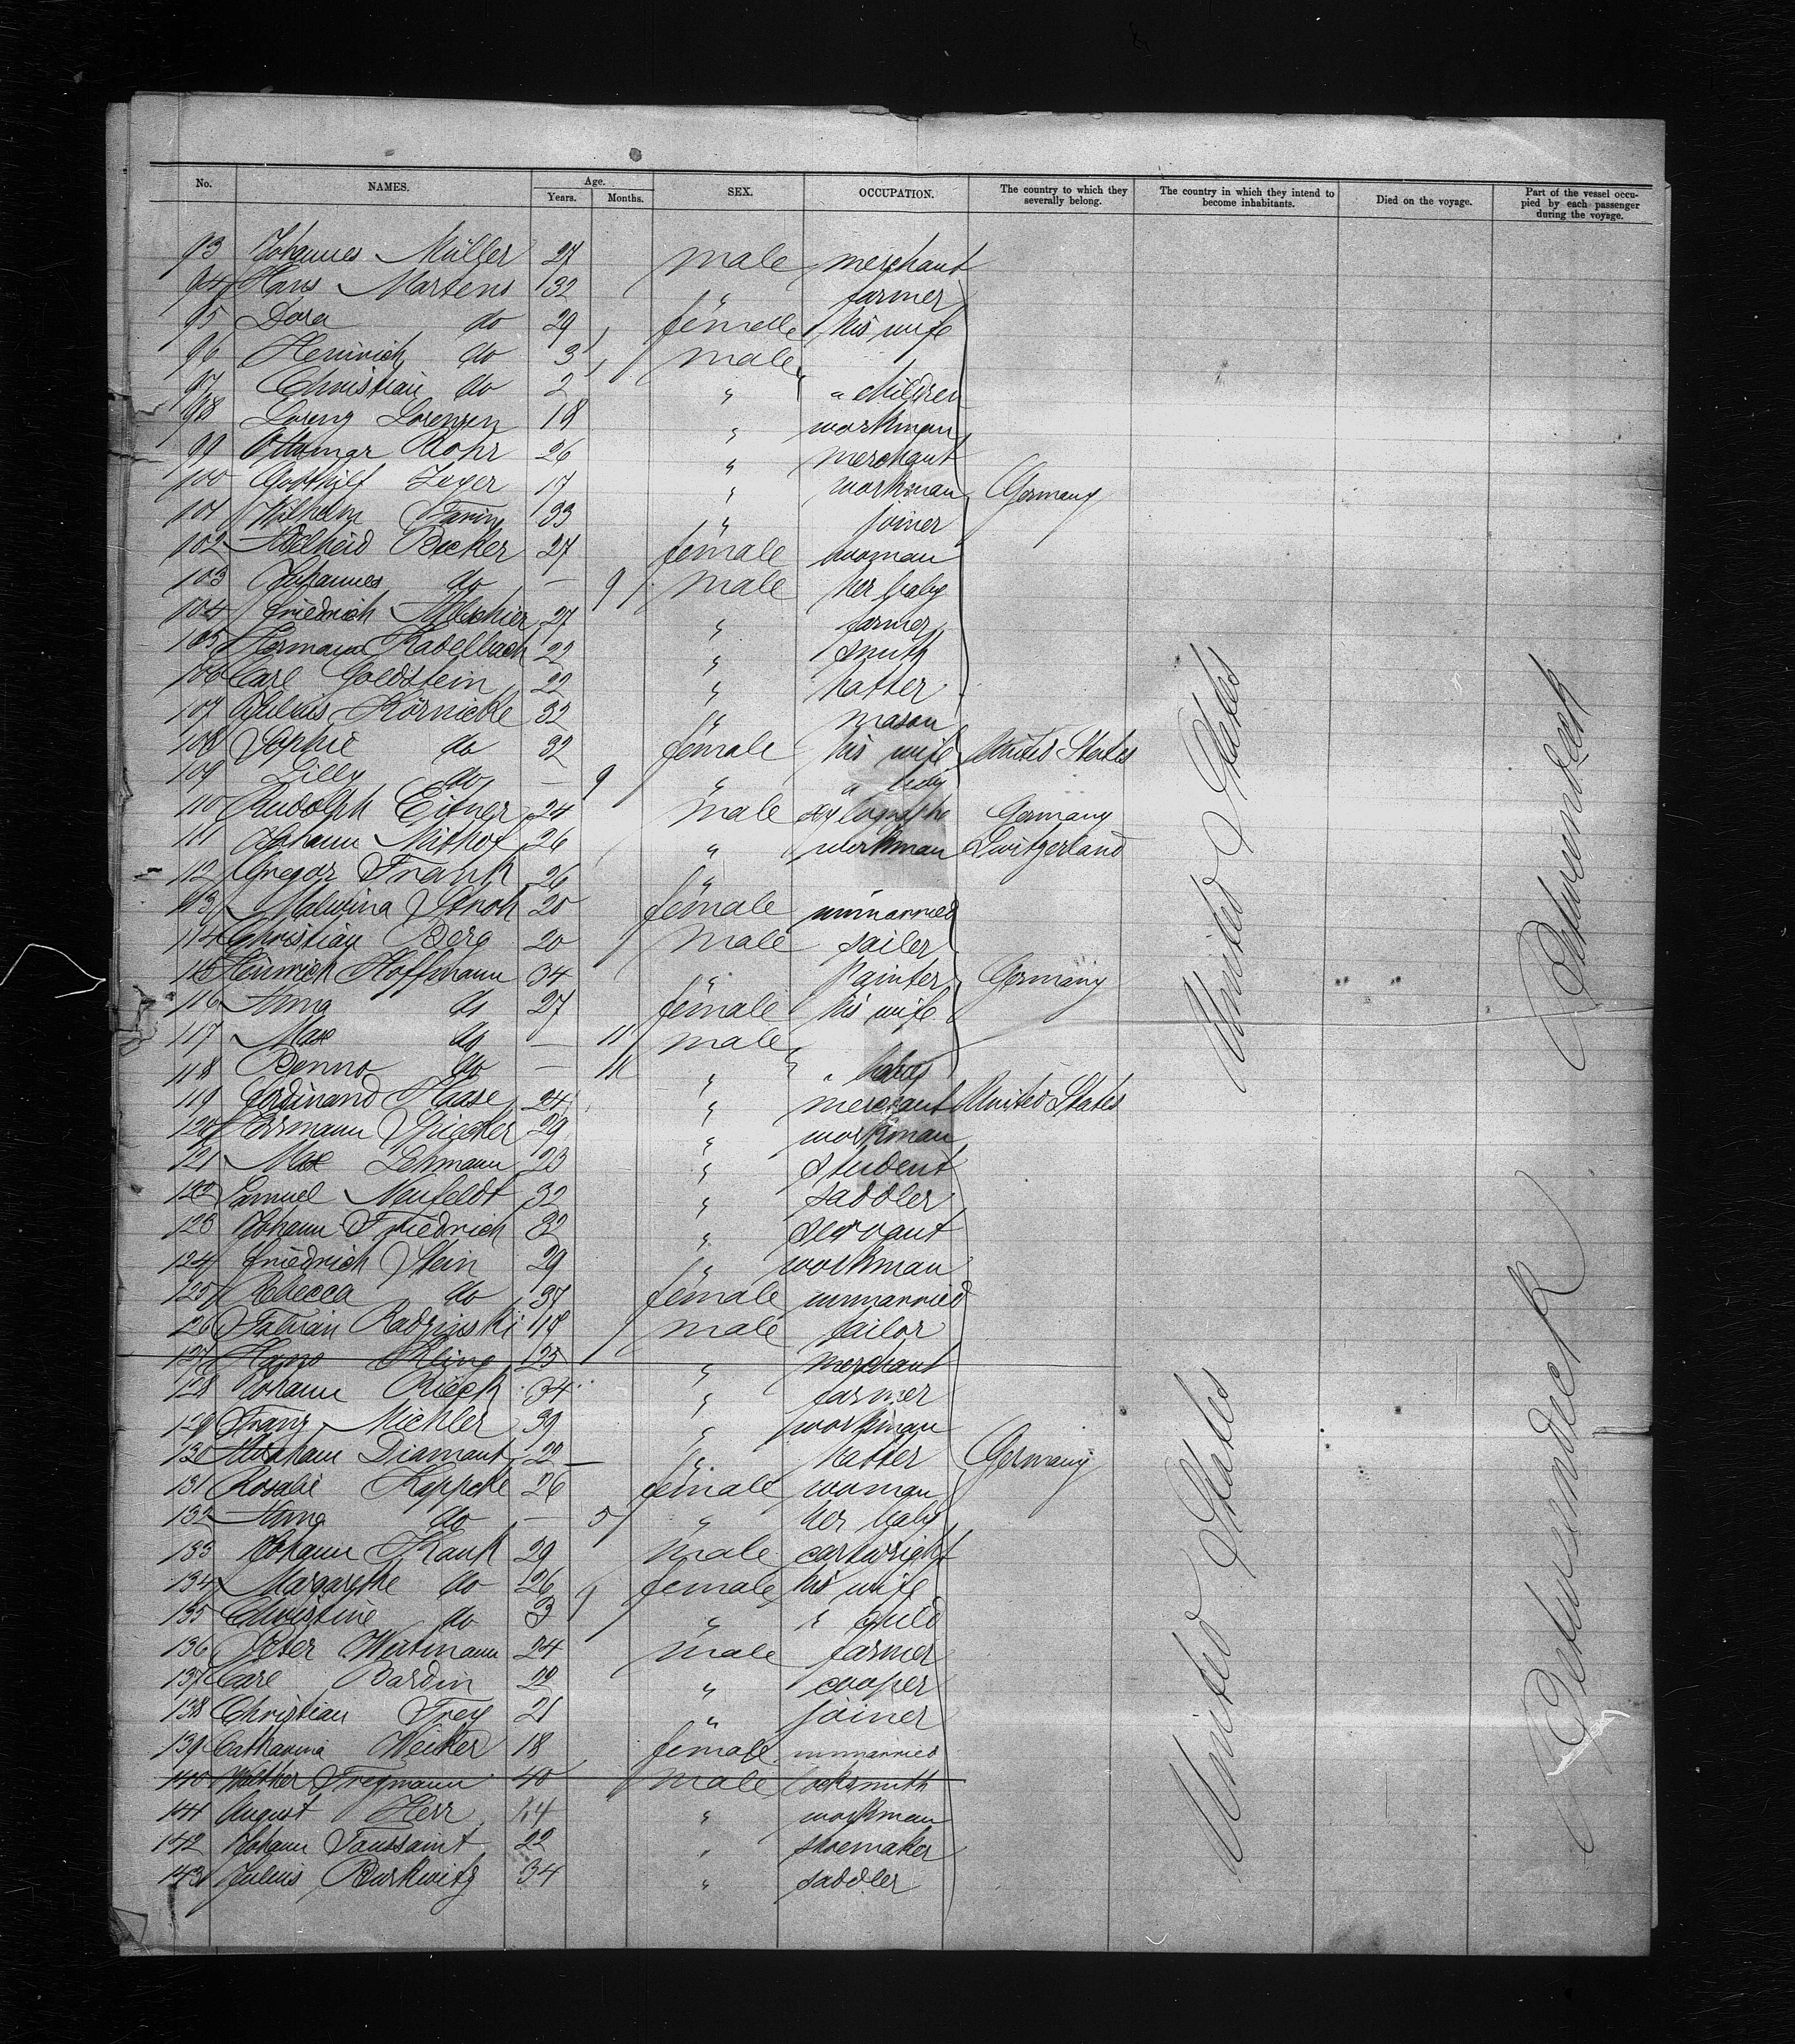 No. NAMES. Age. Years. Months. SEX. OCCUPATION. The country to which they severally belong. The country in which they intend to become inhabitants. Died on the voyage. Part of the vessel occupied by each passenger during the voyage.
93 Johannes Müller 27 male merchant
94 Hans Martens 32 " farmer
95 Dora do 29 female his wife
96 Heinrich do 3 male
97 Christian do 2 " " children
98 Lorenz Lorenzen 18 " workman
99 Ottomar Rohr 26 " merchant
100 Gotthilf 17 " workman Germany
101 Wilhelm 33 " joiner
102 Adelheid Becker 27 female woman
103 Johannes do — 9 male her baby
104 Friedrich 27 " farmer
105 Hermann Kadelbach 22 " smith
106 Carl Goldstein 22 " hatter
107 Julius Körnicke 32 " mason
108 Sophie do 32 female his wife United States
109 Lilly do — 9 " "
110 Rudolph Eitner 24 male Germany
111 Johann Mithof 26 " workman Switzerland
112 Gregor Frank 26 "
113 Malwina 20 female unmarried
114 Christian Berg 20 male sailer
115 Heinrich Hoffmann 34 " painter Germany
116 Anna do 27 female his wife
117 Max do — 11 male
118 Benno do — 11 " "
119 Ferdinand Haase 24 " merchant United States
120 Herrmann 29 " workman
121 Max Lehmann 23 " student
122 Samuel Neufeldt 32 " saddler
123 Johann Friedrich 32 " servant
124 Friedrich Stein 29 " workman
125 Rebecca do 37 female unmarried
126 Fabian Radzinski 19 male tailor
127 Hugo Kling 25 " merchant
128 Johann Rieck 34 " farmer
129 Franz Michler 39 " workman
130 Abraham Diamant 22 " hatter Germany
131 Rosalie Koppcke 26 female woman
132 Anna do — 5 " her baby
133 Johann Kauk 29 male cartwright
134 Margarethe do 26 female his wife
135 Christine do 3 9 " " child
136 Peter Wertmann 24 male farmer
137 Carl Bardin 22 " cooper
138 Christian Frey 21 " joiner
139 Catharina Weiker 18 female unmarried
140 Walther Freymann 40 male locksmith
141 August Herr 44 " workman
142 Johann Toussaint 22 " shoemaker
143 Julius Burkwitz 34 " saddler
United States
United States
Betweendeck
Betweendeck